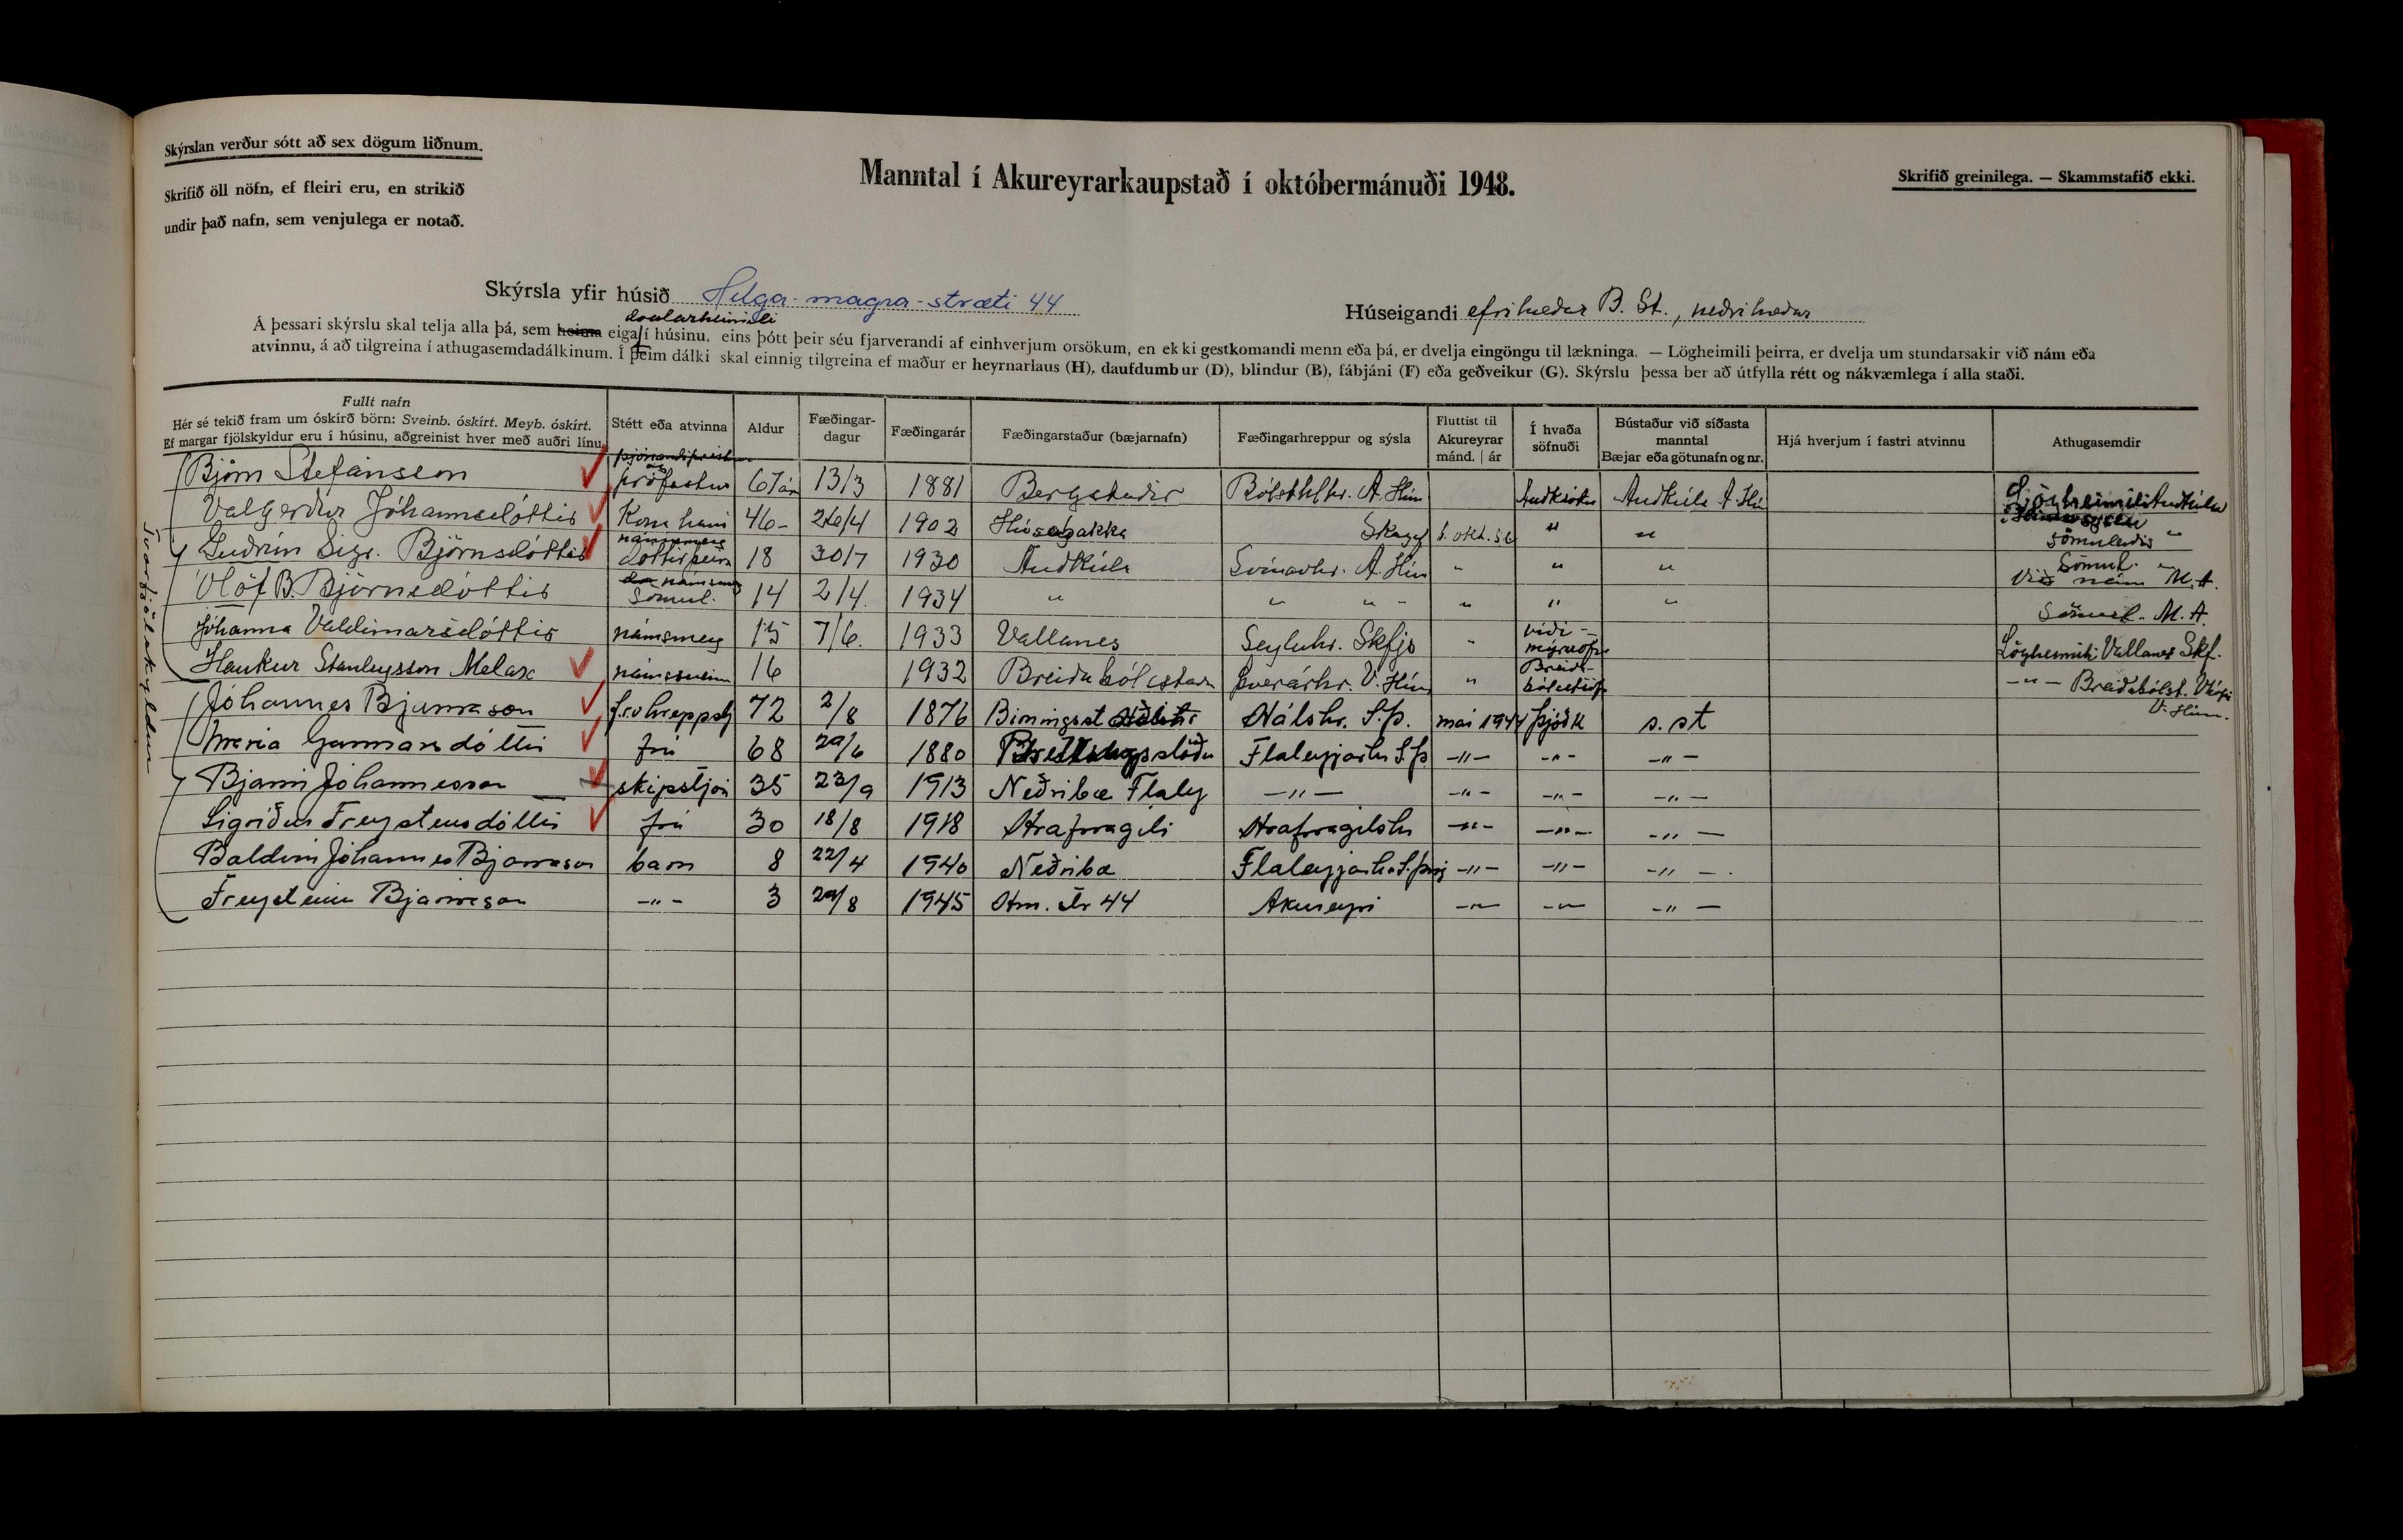 Skýrslan verður sótt að sex dögum liðnum.
Skrifið öll nöfn, ef fleiri eru, en strikið
undir það nafn, sem venjulega er notað.
Manntal í Akureyrarkaupstað í októbermánuði 1948.
Skrifið greinilega. — Skammstafið ekki.
Skýrsla yfir húsið Helga-magra-stræti 44
Húseigandi efrihæðar B. St., neðrihæðar
dvalarheimili
Á þessari skýrslu skal telja alla þá, sem heima eiga í húsinu, eins þótt þeir séu fjarverandi af einhverjum orsökum, en ekki gestkomandi menn eða þá, er dvelja eingöngu til lækninga. — Lögheimili þeirra, er dvelja um stundarsakir við nám eða
atvinnu, á að tilgreina í athugasemdadálkinum. Í þeim dálki skal einnig tilgreina ef maður er heyrnarlaus (H), daufdumbur (D), blindur (B), fábjáni (F) eða geðveikur (G). Skýrslu þessa ber að útfylla rétt og nákvæmlega í alla staði.
Fullt nafn
Hér sé tekið fram um óskírð börn: Sveinb. óskírt. Meyb. óskírt.
Ef margar fjölskyldur eru í húsinu, aðgreinist hver með auðri línu
Stétt eða atvinna
Aldur
Fæðingar-
dagur
Fæðingarár
Fæðingarstaður (bæjarnafn)
Fæðingarhreppur og sýsla
Fluttist til
Akureyrar
mánd. | ár
Í hvaða
söfnuði
Bústaður við síðasta
manntal
Bæjar eða götunafn og nr.
Hjá hverjum í fastri atvinnu
Athugasemdir
Tvær fjölskyldur
Björn Stefánsson prófastur 67 ár 13/3 1881 Bergstaðir Bólsthlhr. A. Hún Auðkúla A. Hú Lögheimili Auðkúla
Valgerður Jóhannsdóttir Kona hans 46- 26/4 1902 Húsabakka Skagf 1. okt. " " sömuleiðis "
Guðrún Sigr. Björnsdóttir námsmey dóttir þeirra 18 30/7 1930 Auðkúla Svínavhr. A. Hún " " " Sömul. " Við nám M.A.
Ólöf B. Björnsdóttir sömul. 14 2/4. 1934 " " " " " " " Sömul. M.A.
Jóhanna Valdimarsdóttir námsmey 15 7/6. 1933 Vallanes Seyluhr. Skfjs " Víði- Lögheimili Vallanes Skf.
Haukur Stanleysson Melax námssveinn 16 1932 Breiðabólstað Þverárhr. V. Hún " Breið- -"- Breiðabólst. V. Hún.
Jóhannes Bjarnason f.v. hreppstj 72 2/8 1876 Birningsst Hálshr. S.þ. mai 1944 Þjóðk s. st
María Gunnarsdóttir frú 68 29/6 1880 Flateyjarhr S.þ. -"- -"- -"-
Bjarni Jóhannesson skipstjóri 35 23/9 1913 Neðribæ Flatey -"- -"- -"- -"-
Sigríður Freysteinsdóttir frú 30 18/8 1918 Hrafnagili Hrafnagilshr -"- -"- -"-
Baldvin Jóhannes Bjarnason barn 8 22/4 1940 Neðribæ Flateyjarhr. S.þing -"- -"- -"-
Freysteinn Bjarnason -"- 3 29/8 1945 Hm. str 44 Akureyri -"- -"- -"-